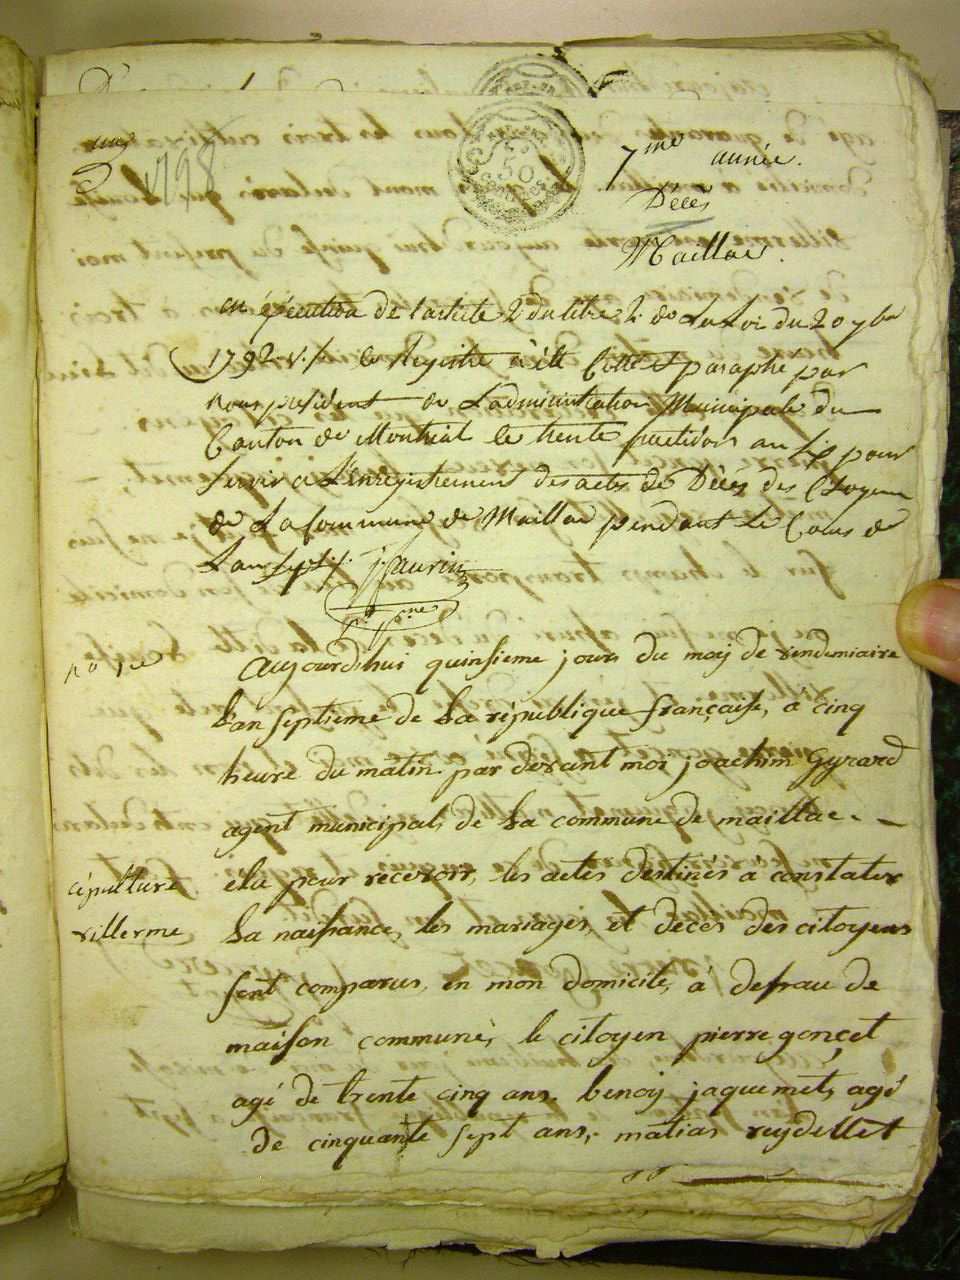 1798
50
7me année.
Décès
Maillac.
en exécution de l'article 2 du titre 2. de la Loi du 20 7bre
1792 v.s. le Registre a été Cotté et paraphé par
nous président de L'administration Municipale du
Canton de Montréal le trente fructidor an six pour
servir a L'enregistrement des actes de Décès des Citoyens
de La Commune de Maillac pendant Le Cours de
L'an sept.
no 1er
aujourdhui quinsieme jours du moij de vendemiaire
L'an septieme de La république française, a cinq
heure du matin par devant moi joachim Gyrard
agent municipal, de La commune de maillac
cépulture
villerme
elu pour recevoir, les actes destinés a constater
La naissance, les mariages, et decès des citoyens
sont comparus, en mon domicile, à defrau de
maison commune, le citoyen pierre goncet
agé de trente cinq ans. benoij jaquemet, agé
de cinquante sept ans, matias reydellet